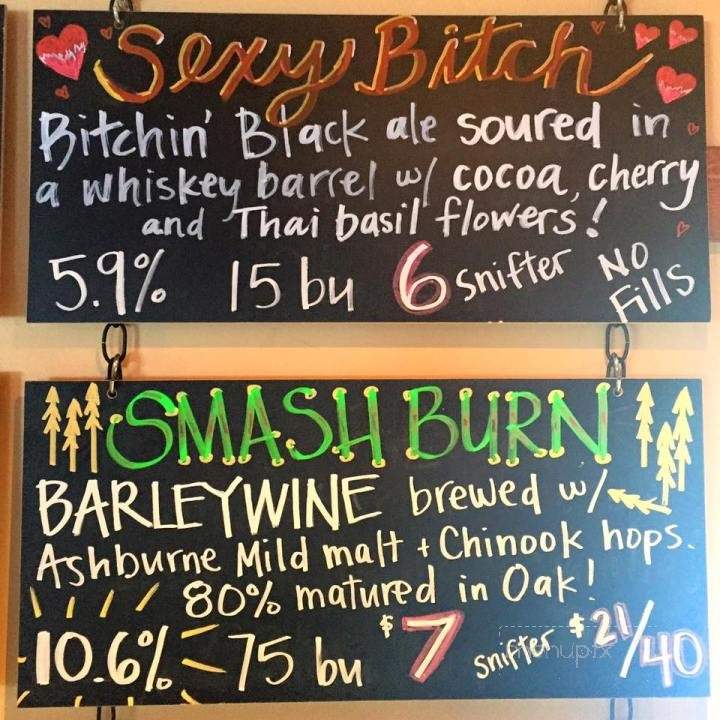 Sexy Bitch
Bitchin' Black ale soured in
a whiskey barrel w/ cocoa, cherry
and Thai basil flowers!
5.9% 15 bu 6 snifter NO Fills
SMASH BURN
BARLEYWINE brewed w/
Ashburne Mild malt + Chinook hops.
80% matured in Oak!
10.6% 75 bu $7 snifter $21/40
menupix